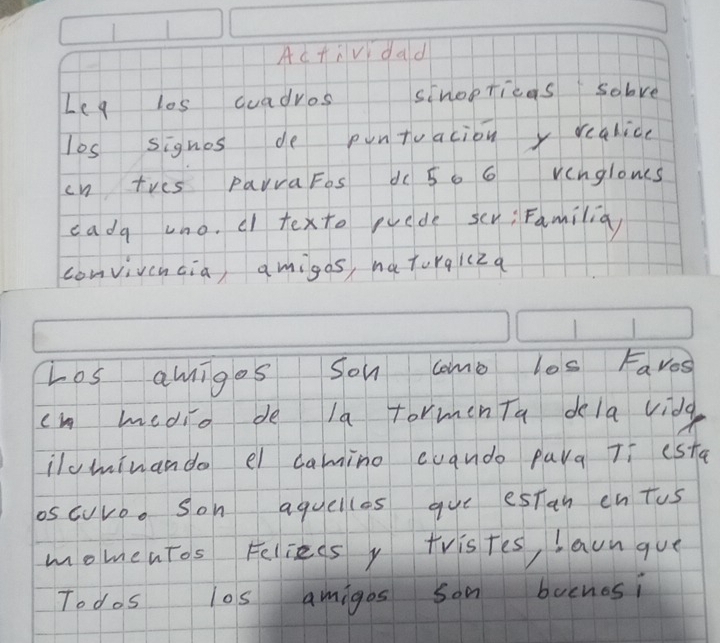 Actividad
Lea los cuadros sinopticas sobre
los signos de puntuación y realice
en tres parrafos de 5 o 6 renglones
cada uno. el texto puede ser: Familia,
convivencia, amigos, naturaleza
Los amigos son como los Faros
en medio de la tormenta dela vida
iluminando el camino cuando para Ti esta
oscuro. Son aquellos que estan en tus
momentos Felices y tristes, ! aun que
Todos los amigos son buenos ¡